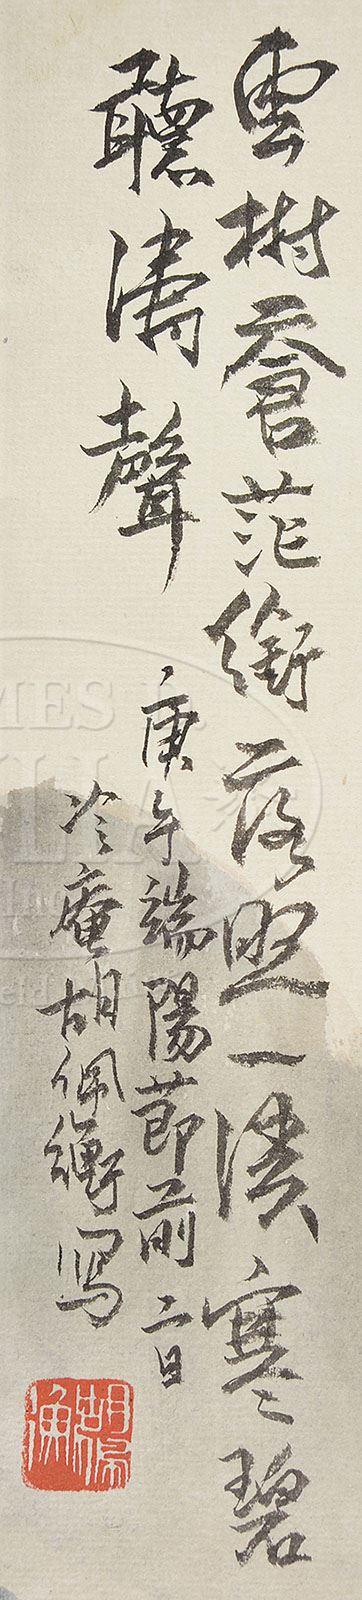 雲樹蒼茫銜落照一溪寒碧
聽濤聲
庚午端陽節前二日
冷庵胡佩衡寫
胡佩衡